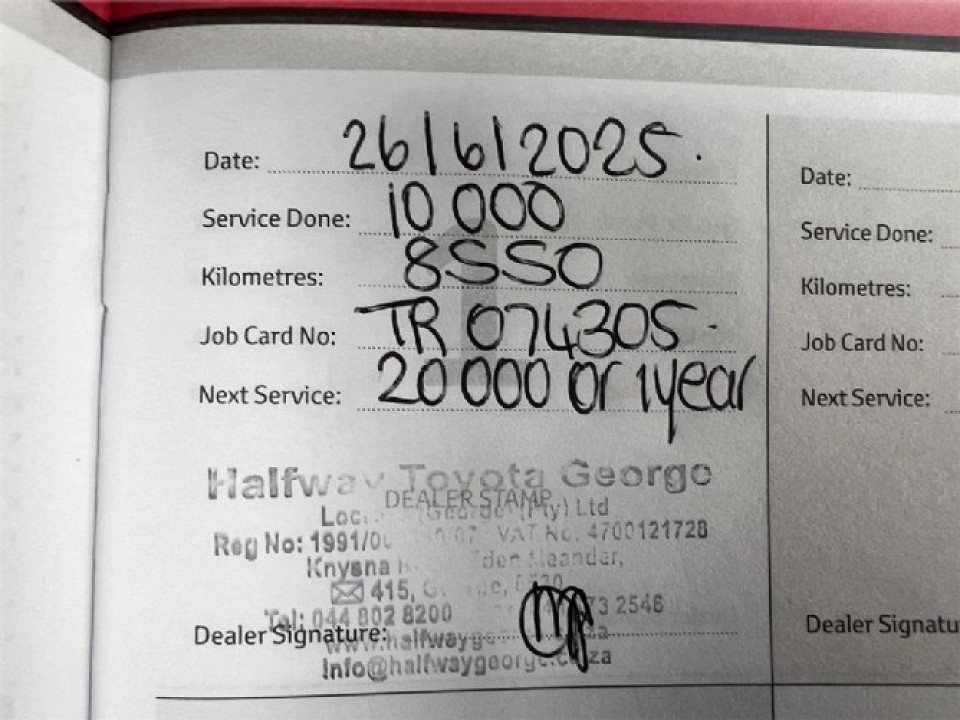 Date: 26/6/2025.
Service Done: 10 000
Kilometres: 8550
Job Card No: TR 074305.
Next Service: 20 000 or 1 year
Halfway Toyota George
DEALER STAMP
(Pty) Ltd
Reg No: 1991/0 07 VAT No: 4700121728
Knysna Eden Meander,
415, 6530
Tel: 044 802 8200 73 2546
Dealer Signature:
www.halfwayge za
Info@halfwaygeorge.co.za
Date:
Service Done:
Kilometres:
Job Card No:
Next Service:
Dealer Signatu